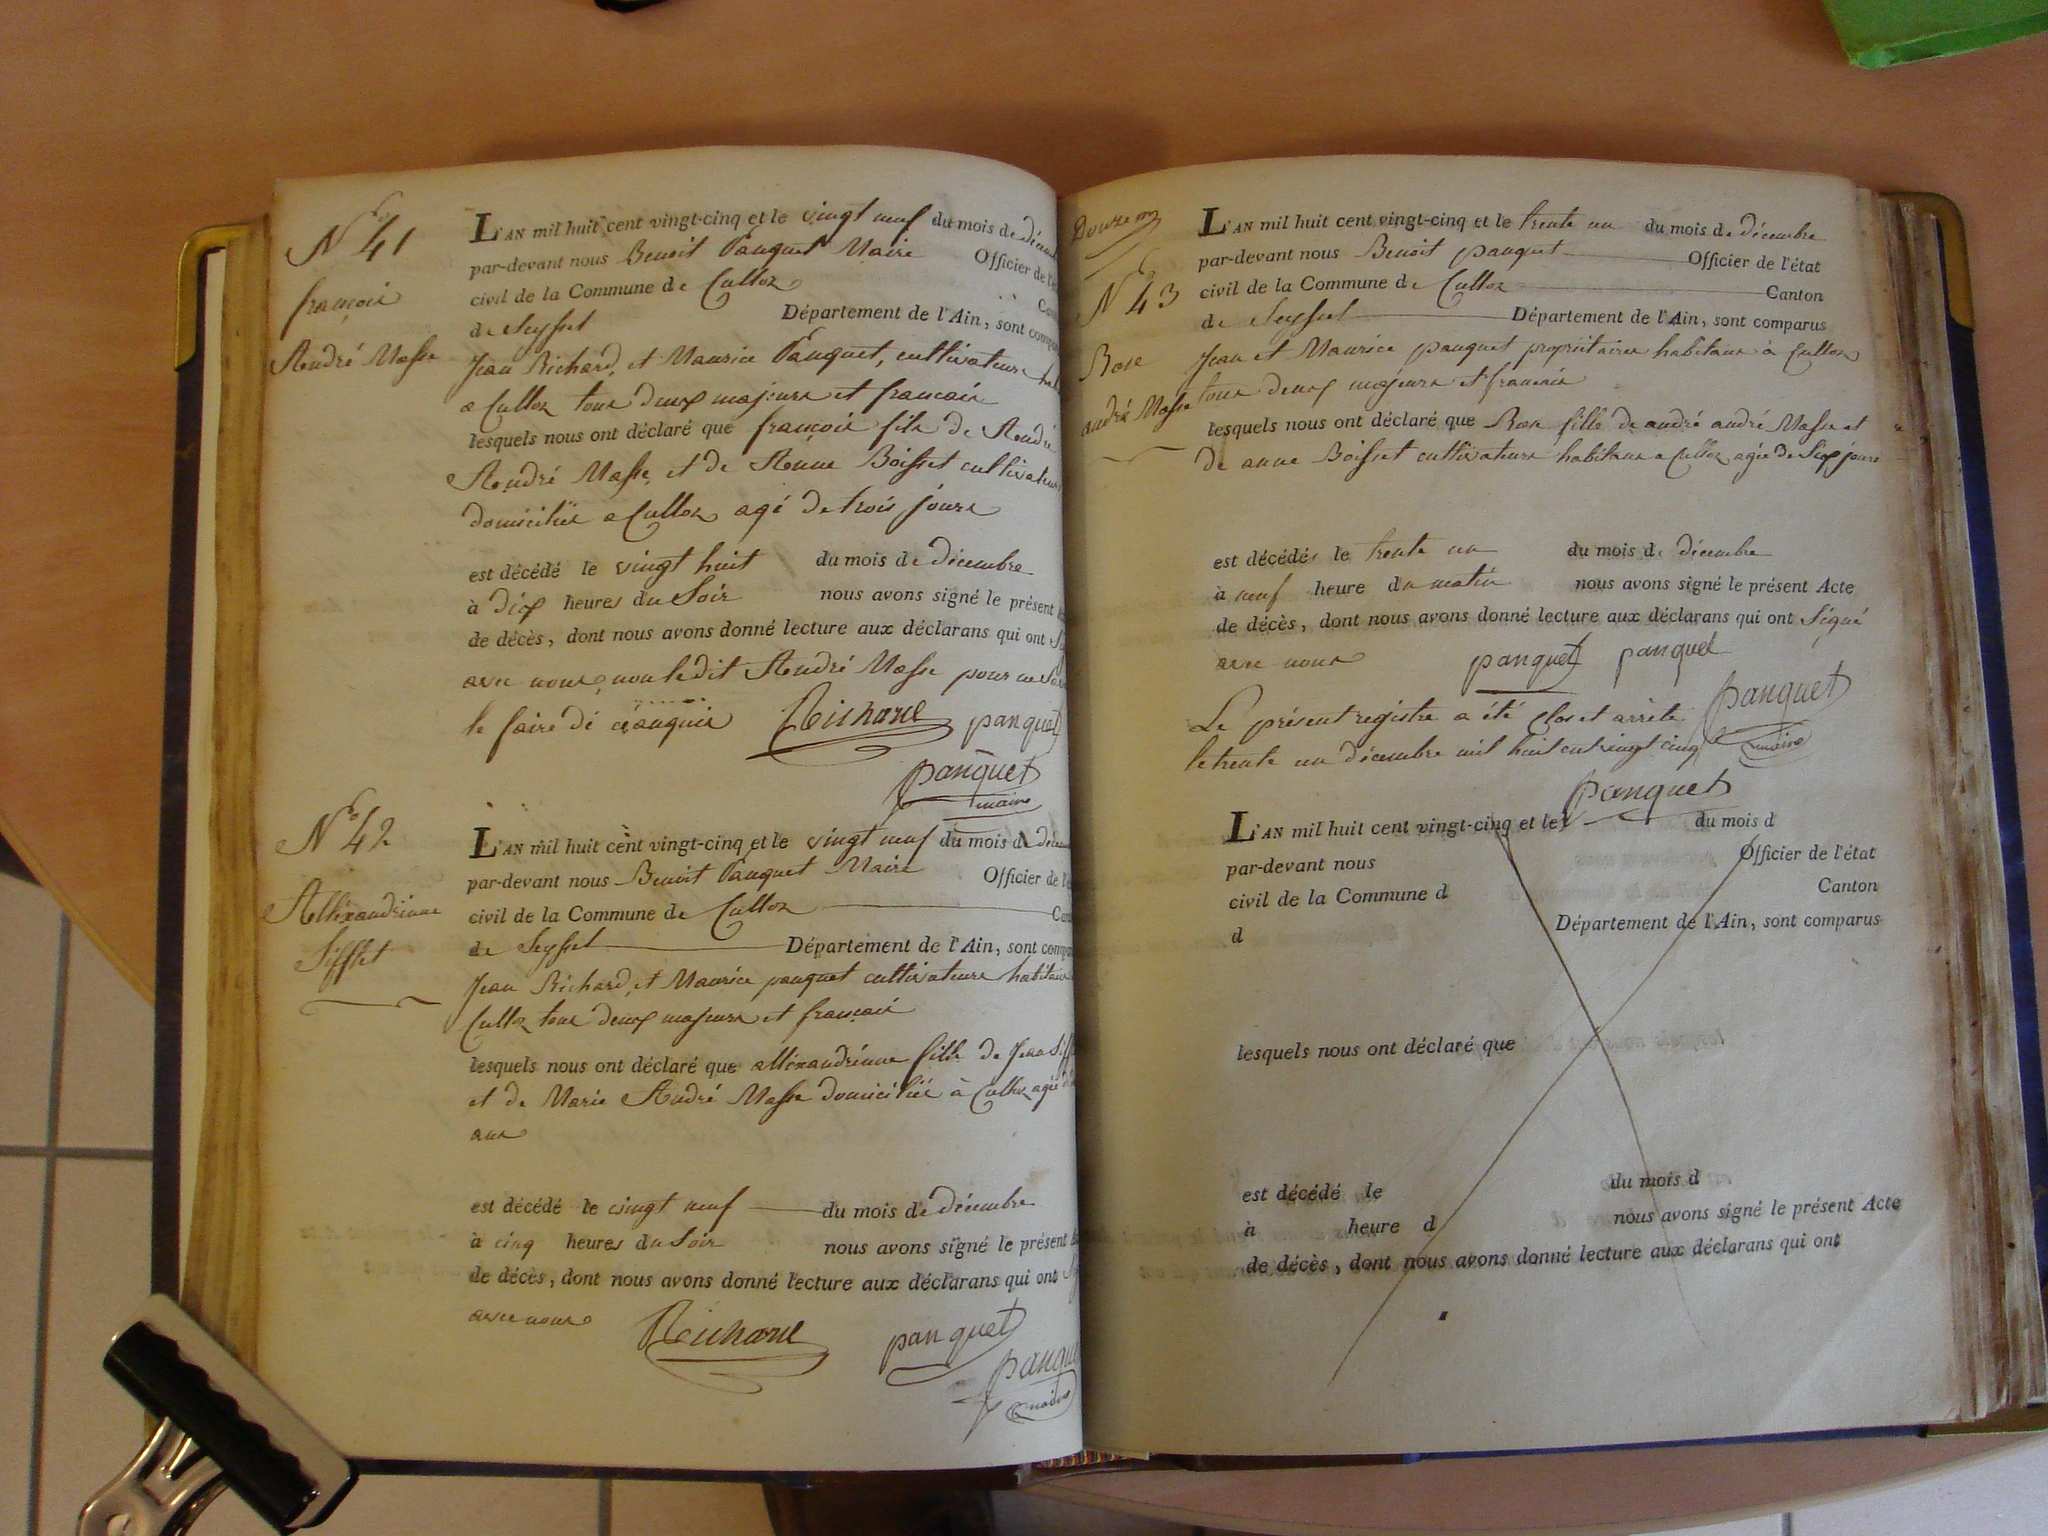 N° 41
françois
André Masse
L'AN mil huit cent vingt-cinq et le vingt neuf du mois de
par-devant nous Benoit Pauquet Maire Officier de
civil de la Commune de Culloz
de Seyssel Département de l'Ain, sont
Jean Richard, et Maurice Pauquet, cultivateurs
a Culloz tous deux majeurs et francais
lesquels nous ont déclaré que françois fils de André
André Masse, et de Anne Boisset cultivateurs
domiciliés a Culloz agé de trois jours
est décédé le vingt huit du mois de décembre
à dix heures du Soir nous avons signé le présent
de décès, dont nous avons donné lecture aux déclarans qui ont
avec nous, non ledit André Masse pour ne
le faire de ce requis Richard pauquet
pauquet
maire
N° 42
Allexandrinne
Sifflet
L'AN mil huit cent vingt-cinq et le vingt neuf du mois d
par-devant nous Benoit Pauquet Maire Officier de
civil de la Commune de Culloz
de Seyssel Département de l'Ain, sont
Jean Richard, et Maurice pauquet cultivateurs
Culloz tous deux majeurs et français
lesquels nous ont déclaré que allexandrinne fille de Jean
et de Marie André Masse domiciliée à Culloz agée
ans
est décédé le vingt neuf du mois de décembre
à cinq heures du Soir nous avons signé le présent
de décès, dont nous avons donné lecture aux déclarans qui ont
avec nous Richard pauquet
maire
N° 43
Rose
andré Masse
L'AN mil huit cent vingt-cinq et le trente un du mois de décembre
par-devant nous Benoit pauquet Officier de l'état
civil de la Commune de Culloz Canton
de Seyssel Département de l'Ain, sont comparus
Jean et Maurice pauquet propriétaires habitans à Culloz
tous deux majeurs et francais
lesquels nous ont déclaré que Rose fille de andré andré Masse et
de anne Boisset cultivateurs habitans a Culloz agée de Six jours
est décédés le trente un du mois de décembre
à neuf heure du matin nous avons signé le présent Acte
de décès, dont nous avons donné lecture aux déclarans qui ont Signé
avec nous pauquet pauquet
pauquet
maire
Le présent registre a été clos et arrêté
le trente un décembre mil huit cent vingt cinq
pauquet
L'AN mil huit cent vingt-cinq et le du mois d
par-devant nous Officier de l'état
civil de la Commune d Canton
d Département de l'Ain, sont comparus
lesquels nous ont déclaré que
est décédé le du mois d
à heure d nous avons signé le présent Acte
de décès, dont nous avons donné lecture aux déclarans qui ont